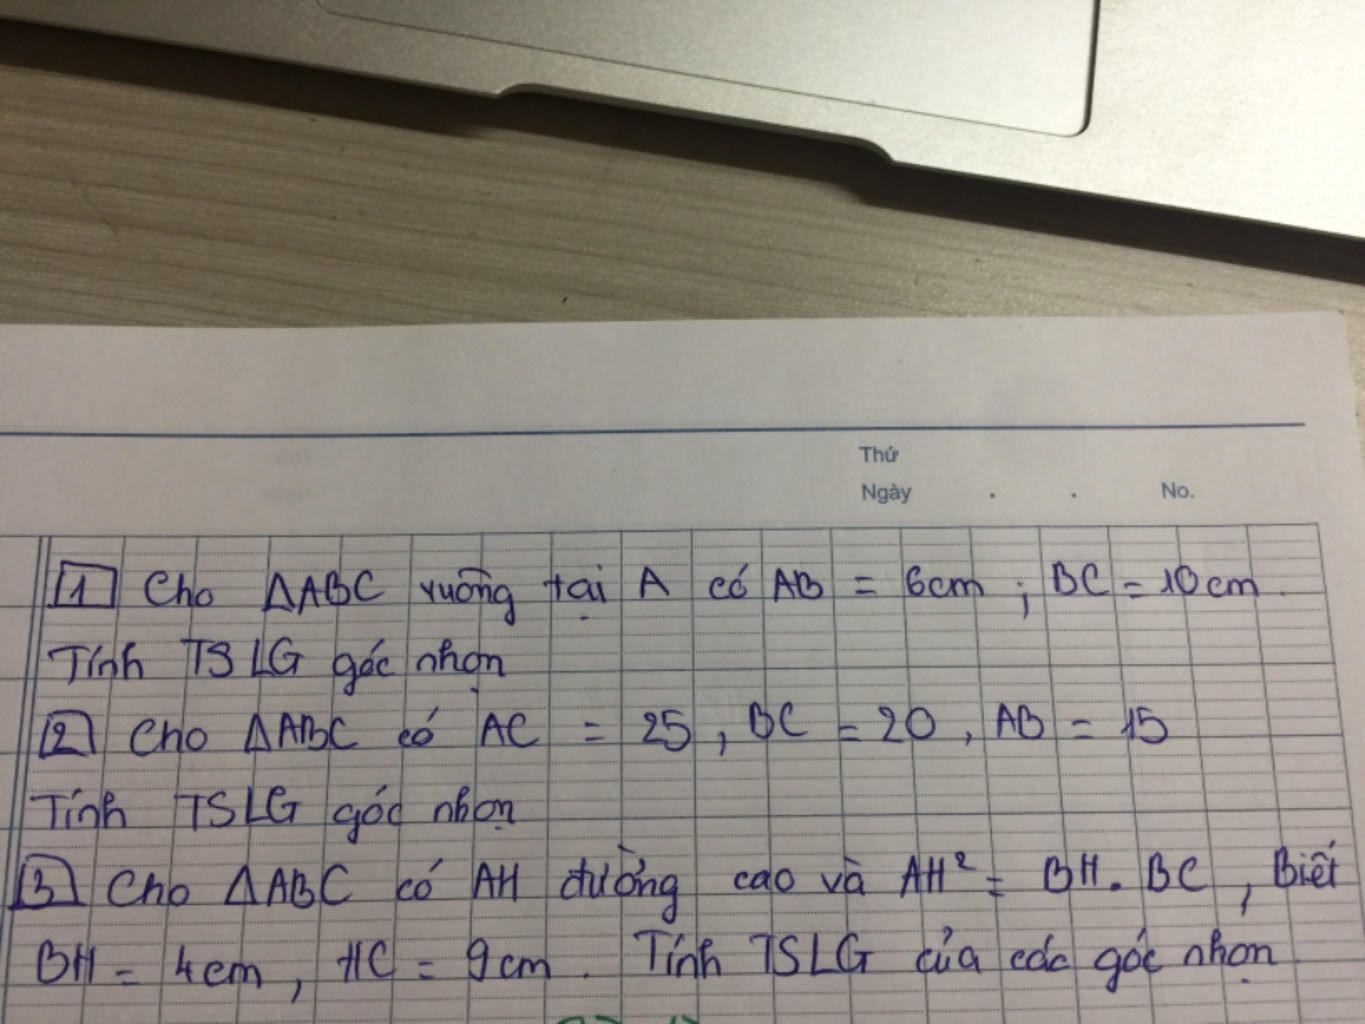 Thứ
Ngày . . No.
1 Cho ΔABC vuông tại A có AB = 6cm ; BC = 10cm.
Tính TSLG góc nhọn
2 Cho ΔABC có AC = 25, BC = 20, AB = 15
Tính TSLG góc nhọn
3 Cho ΔABC có AH đường cao và AH² = BH. BC, Biết
BH = 4cm, HC = 9cm. Tính TSLG của các góc nhọn